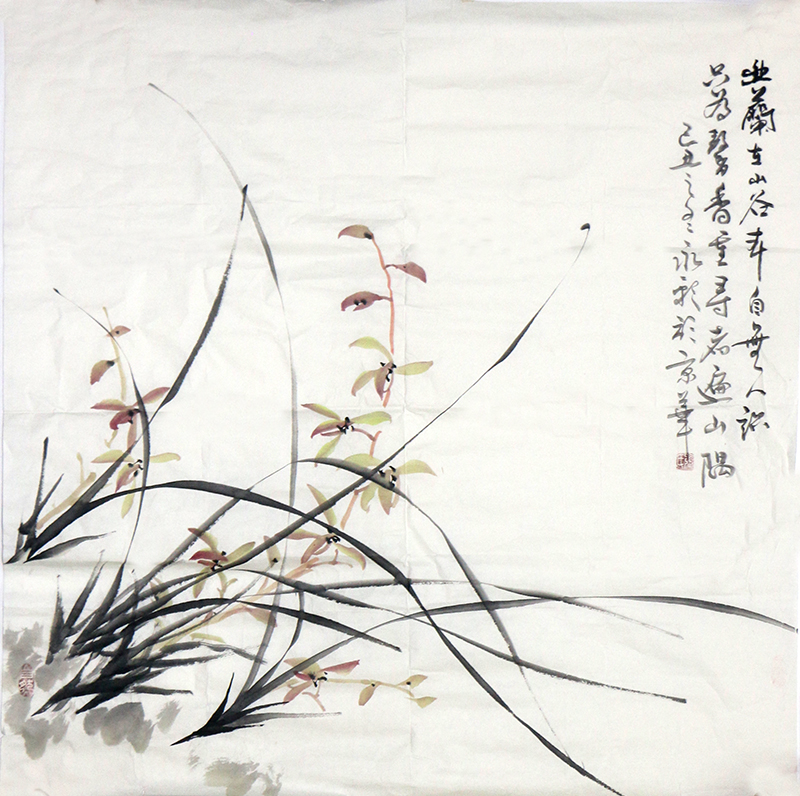 幽蘭在山谷本自無人識
只為馨香重尋者遍山隅
己丑之冬永彩於京華